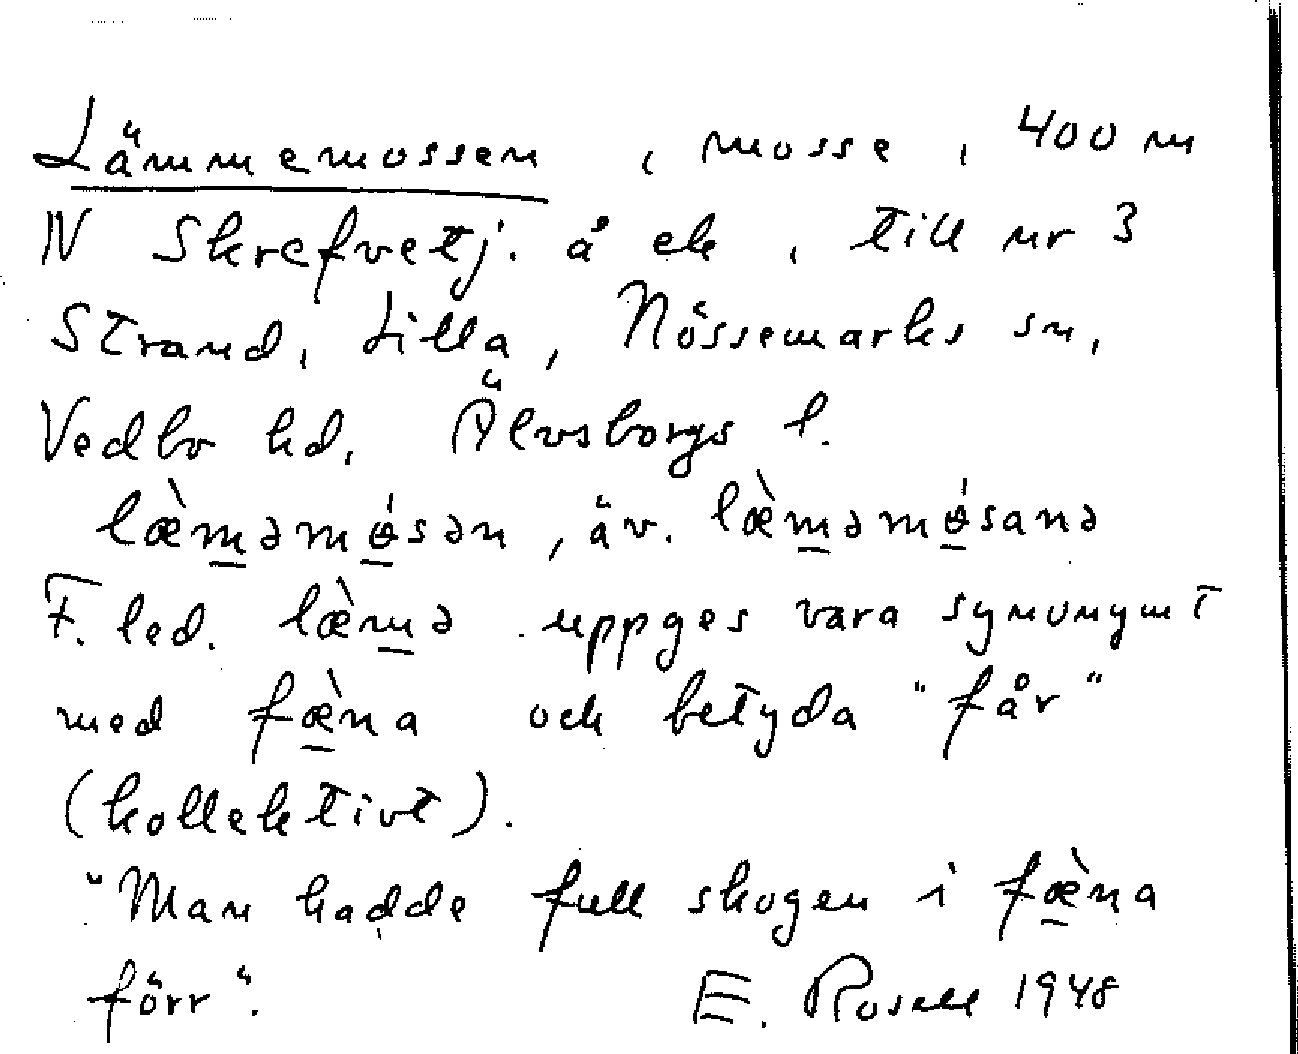 Lämmemossen, mosse, 400 m
N Skrefvetj. å ek, till nr 3
Strand, Lilla, Nössemarks sn,
Vedbo hd, Älvsborgs l.
læ̀m̲əmɵ̲́sən, äv. læ̀m̲əmɵ̲́sana
F. led. læ̀m̲ə uppges vara synonymt
med fæ̲̀na och betyda "får"
(kollektivt).
"Man hadde full skogen i fæ̲̀na
förr".   E. Rosell 1948